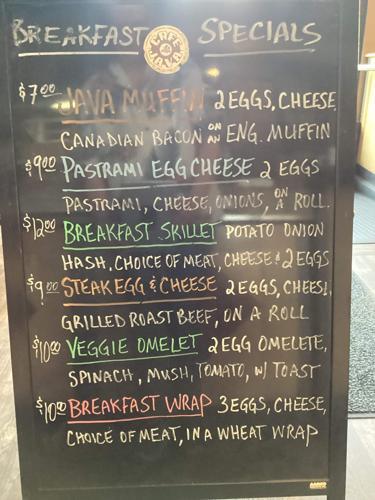 BREAKFAST CAFE JAVA SPECIALS
$7.00 JAVA MUFFIN 2 EGGS, CHEESE,
CANADIAN BACON ON AN ENG. MUFFIN
$9.00 PASTRAMI EGG CHEESE 2 EGGS
PASTRAMI, CHEESE, ONIONS, ON A ROLL.
$12.00 BREAKFAST SKILLET POTATO ONION
HASH, CHOICE OF MEAT, CHEESE & 2 EGGS
$9.00 STEAK EGG & CHEESE 2 EGGS, CHEESE,
GRILLED ROAST BEEF, ON A ROLL
$10.00 VEGGIE OMELET 2 EGG OMELETE,
SPINACH, MUSH, TOMATO, W/ TOAST
$10.00 BREAKFAST WRAP 3 EGGS, CHEESE,
CHOICE OF MEAT, IN A WHEAT WRAP